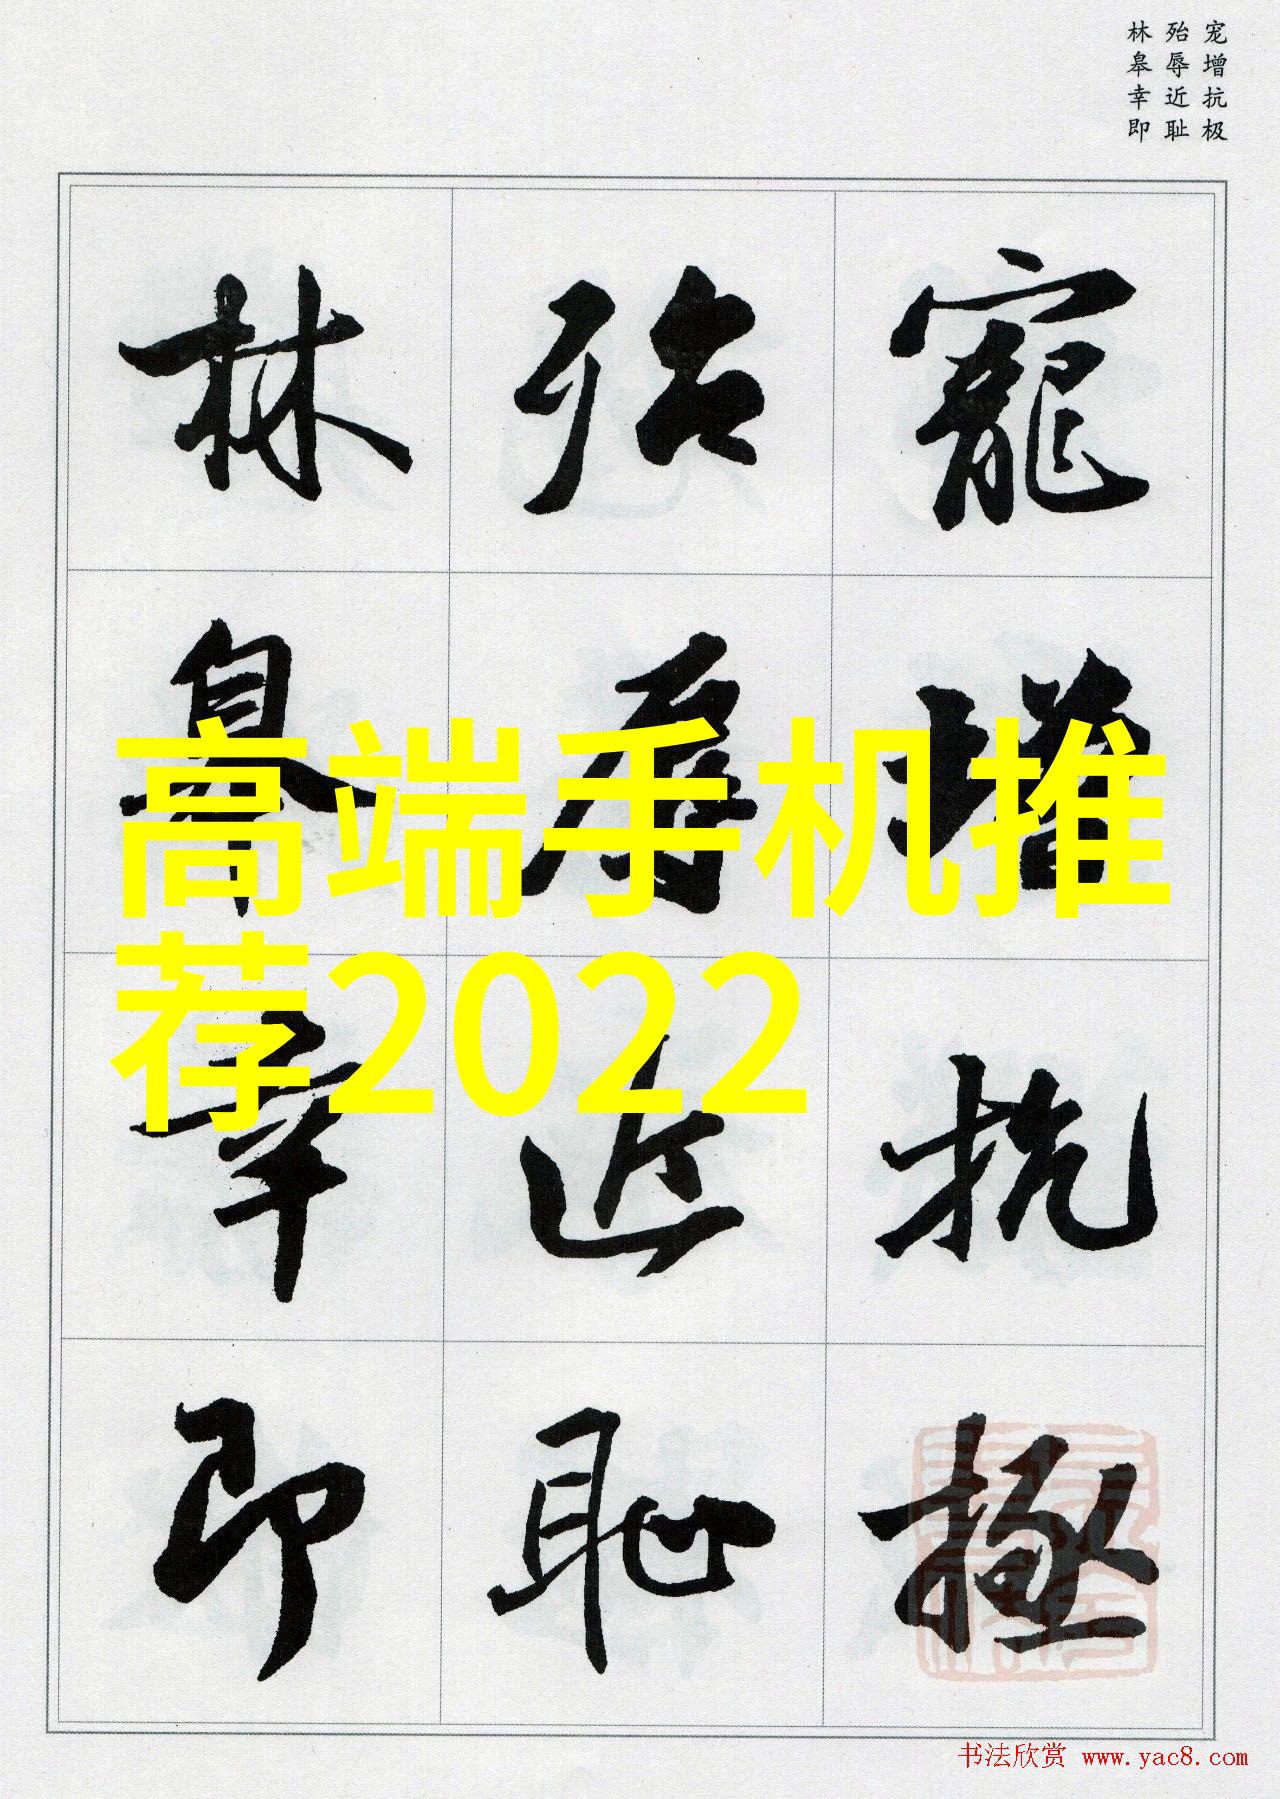 宠增抗极
殆辱近耻
林皋幸即
寵增抗極
殆辱近耻
林皋幸即
高端手机推
荐2022
书法欣赏 www.yac8.com